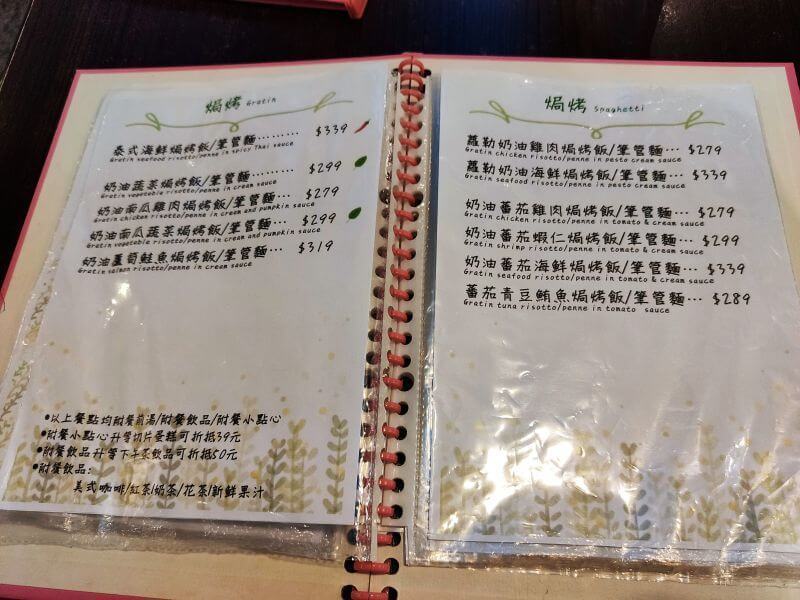 焗烤 Gratin
泰式海鮮焗烤飯/筆管麵……… $339
Gratin seafood risotto/penne in spicy Thai sauce
奶油蔬菜焗烤飯/筆管麵……… $299
Gratin vegetable risotto/penne in cream sauce
奶油南瓜雞肉焗烤飯/筆管麵… $279
Gratin chicken risotto/penne in cream and pumpkin sauce
奶油南瓜蔬菜焗烤飯/筆管麵… $299
Gratin vegetable risotto/penne in cream and pumpkin sauce
奶油蘆筍鮭魚焗烤飯/筆管麵… $319
Gratin salmon risotto/penne in cream sauce
•以上餐點均附餐前湯/附餐飲品/附餐小點心
•附餐小點心升等切片蛋糕可折抵39元
•附餐飲品升等下午茶飲品可折抵50元
•附餐飲品:
美式咖啡/紅茶/奶茶/花茶/新鮮果汁
焗烤 Spaghetti
蘿勒奶油雞肉焗烤飯/筆管麵… $279
Gratin chicken risotto/penne in pesto cream sauce
蘿勒奶油海鮮焗烤飯/筆管麵… $339
Gratin seafood risotto/penne in pesto cream sauce
奶油蕃茄雞肉焗烤飯/筆管麵… $279
Gratin chicken risotto/penne in tomato & cream sauce
奶油蕃茄蝦仁焗烤飯/筆管麵… $299
Gratin shrimp risotto/penne in tomato & cream sauce
奶油蕃茄海鮮焗烤飯/筆管麵… $339
Gratin seafood risotto/penne in tomato & cream sauce
蕃茄青豆鮪魚焗烤飯/筆管麵… $289
Gratin tuna risotto/penne in tomato sauce